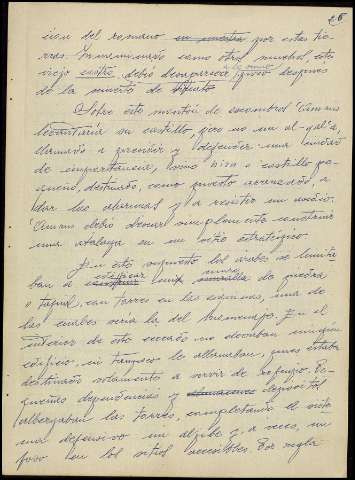 25
cise del romano en nuestra por estas tie-
rras. Inmemorado como otros muchos, este
viejo castro debió desaparecer poco después
de la muerte de
Sobre este montón de escombros Omar
levantaría su castillo, pero no un al-qal'a,
llamado a prender y defender una ciudad
de importancia, sino hisn o castillo pe-
queño, destinado, como puesto avanzado, a
dar las alarmas y a resistir un asedio.
Omar debió desear simplemente construir
una atalaya en un sitio estratégico.
En este supuesto los árabes se limita-
ban a edificar unos muros de piedra
o tapial, con torres en las esquinas, una de
las cuales sería la del homenaje. En el
interior de este cercado no elevaban ningún
edificio, ni tampoco le allanaban, pues estaba
destinado solamente a servir de refugio. Pe-
queñas dependencias y depósitos
albergaban las torres, completando el siste-
ma defensivo un aljibe y, a veces, un
foso en los sitios accesibles. Por regla